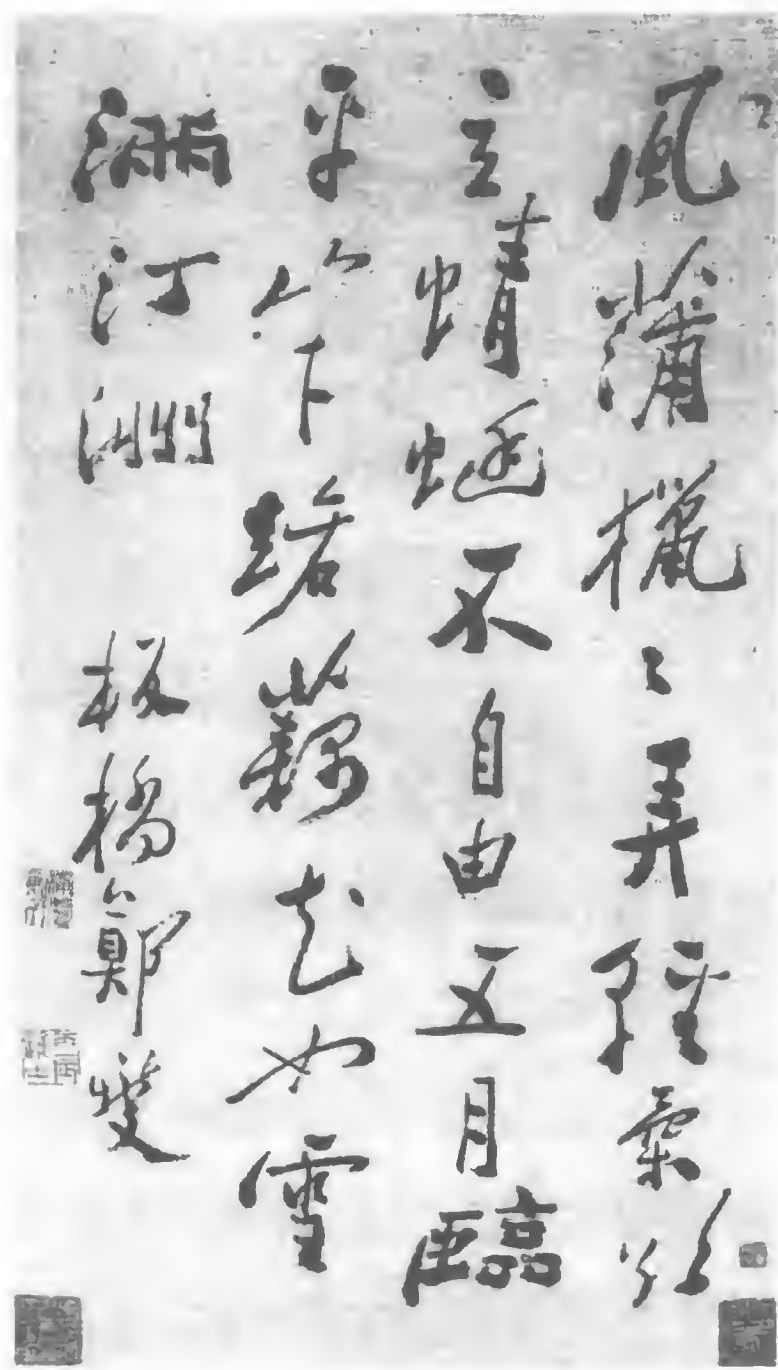 風蒲獵〻弄輕柔欲
立蜻蜓不自由五月臨
平山下路藕花如雪
滿汀洲
板橋鄭燮